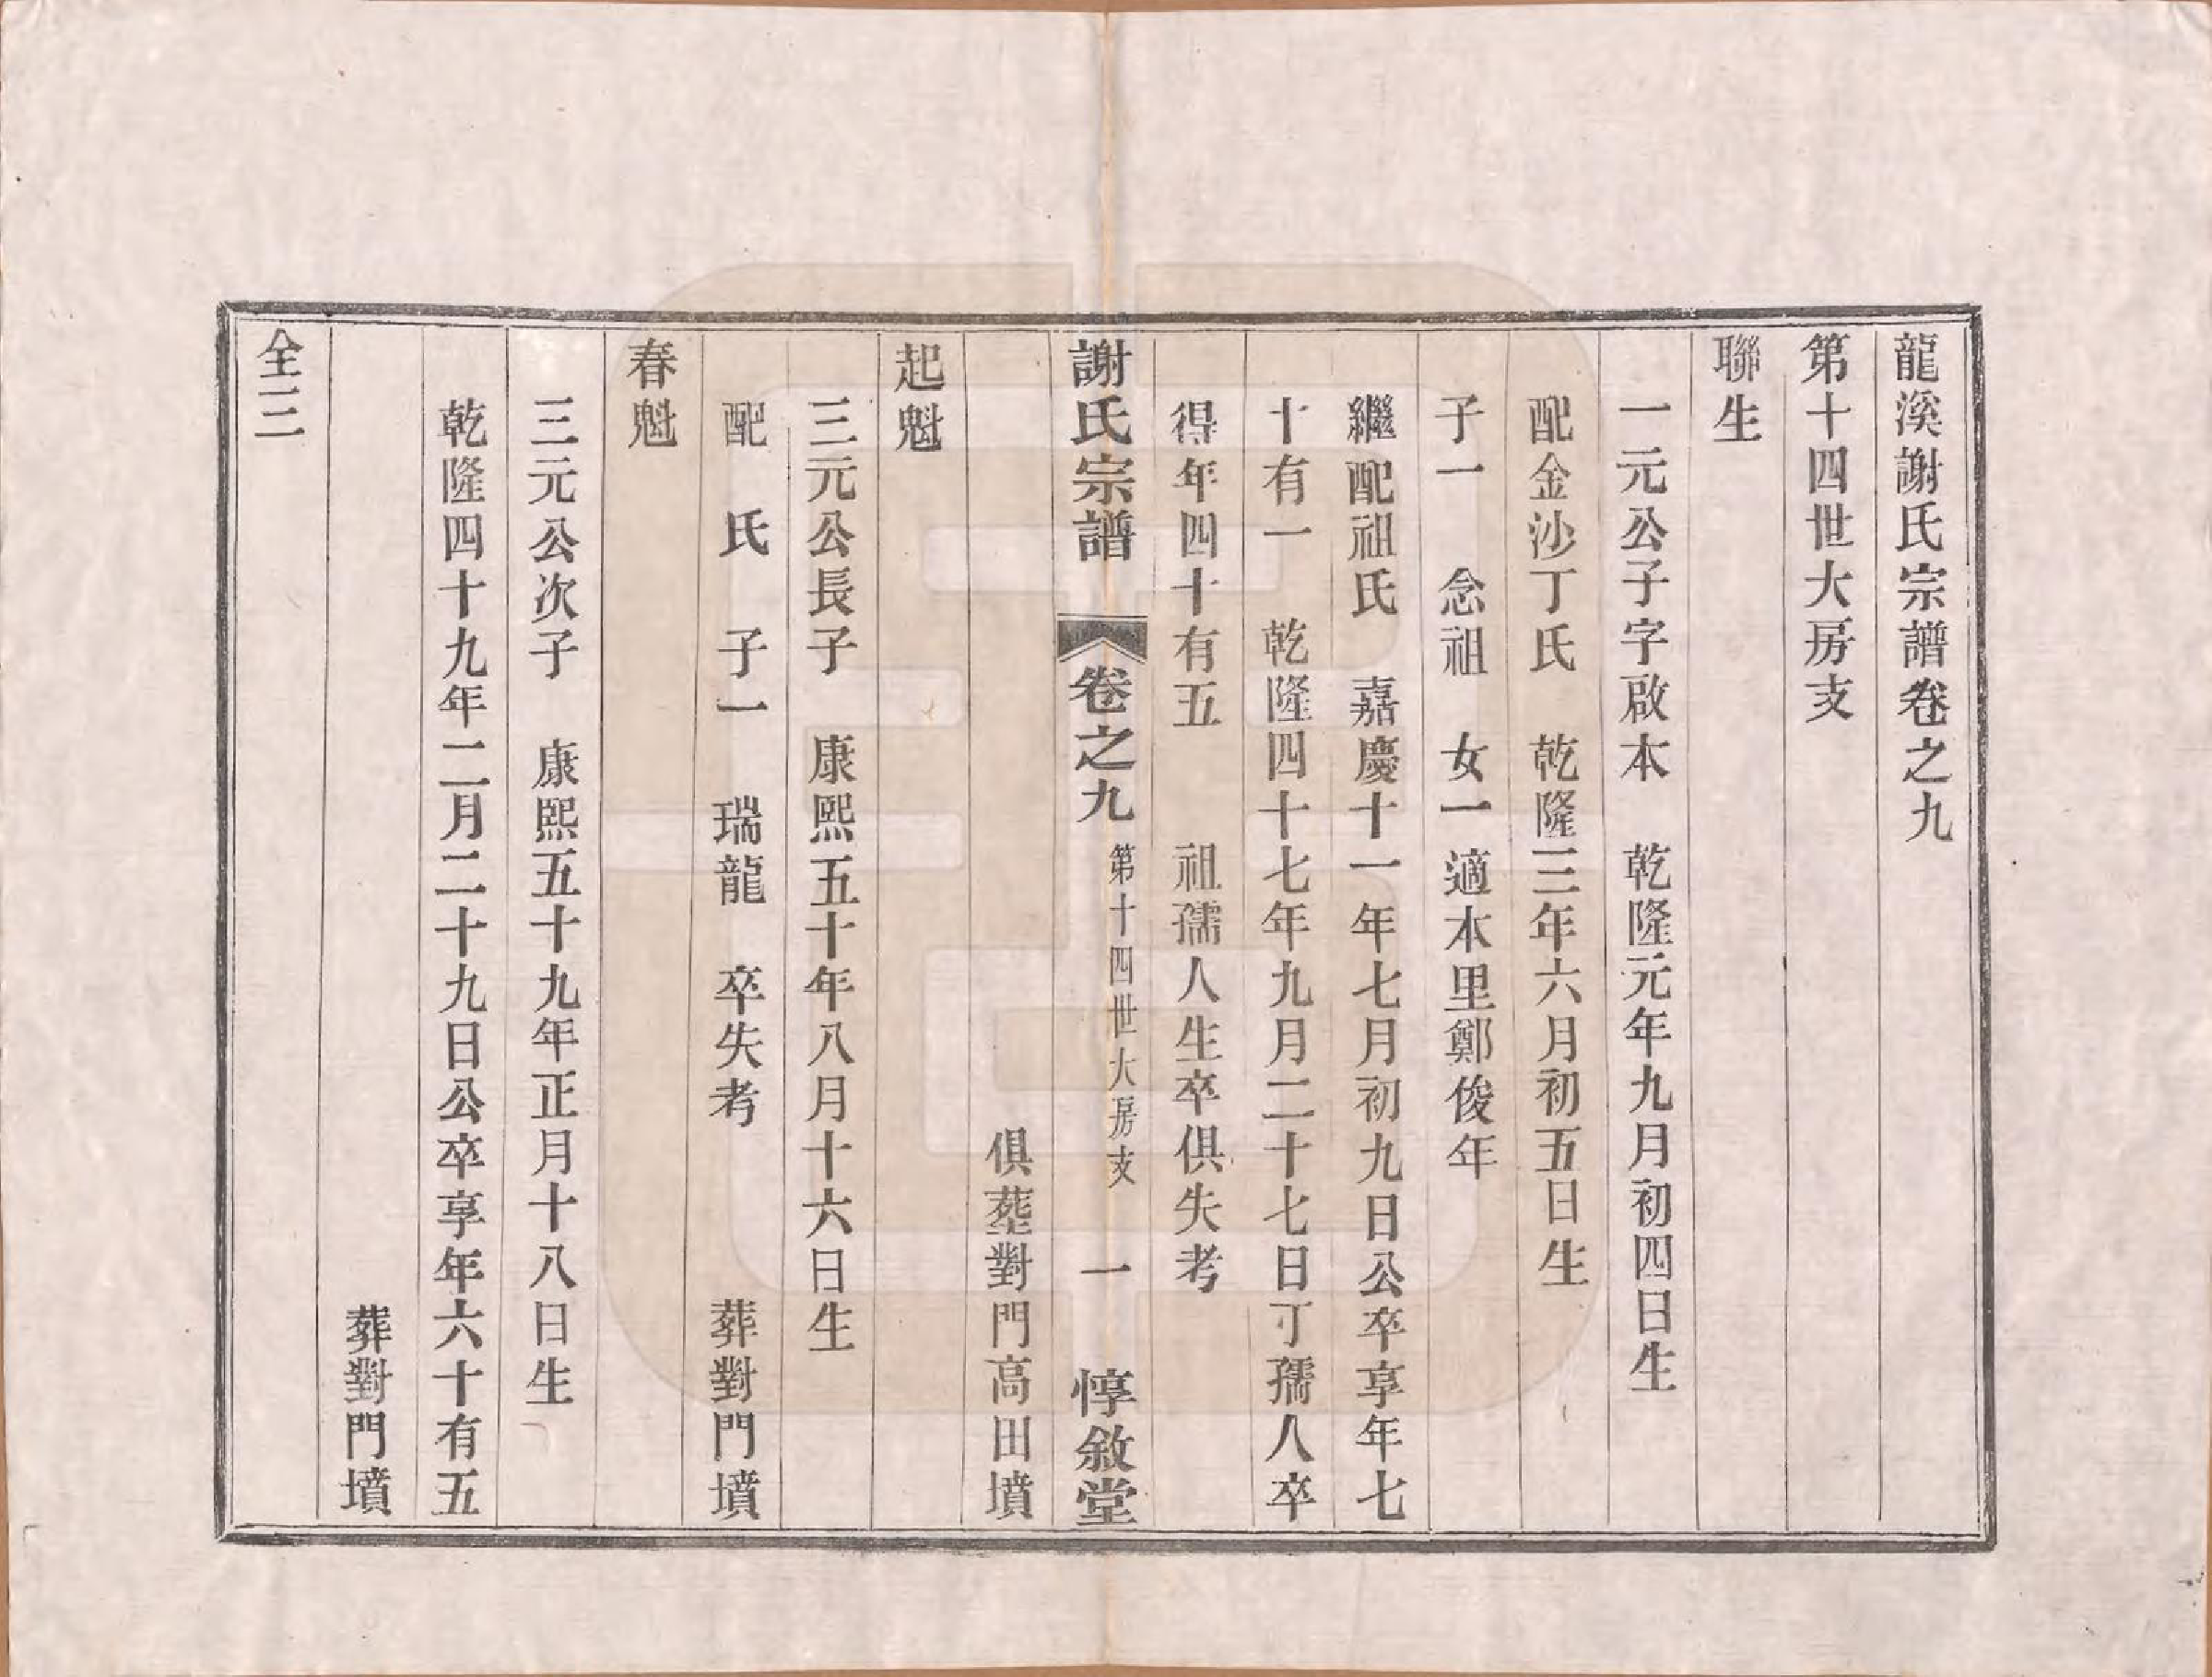 龍溪謝氏宗譜卷之九
第十四世大房支
聯生
一元公子字啟本　乾隆元年九月初四日生
配金沙丁氏　乾隆三年六月初五日生
子一　念祖　女一適本里鄭俊年
繼配祖氏　嘉慶十一年七月初九日公卒享年七
十有一　乾隆四十七年九月二十七日丁孺人卒
得年四十有五　祖孺人生卒俱失考
謝氏宗譜　卷之九　第十四世大房支　一　惇敘堂
俱葬對門高田墳
起魁
三元公長子　康熙五十年八月十六日生
配　氏　子一　瑞龍　卒失考　葬對門墳
春魁
三元公次子　康熙五十九年正月十八日生
乾隆四十九年二月二十九日公卒享年六十有五
葬對門墳
全三